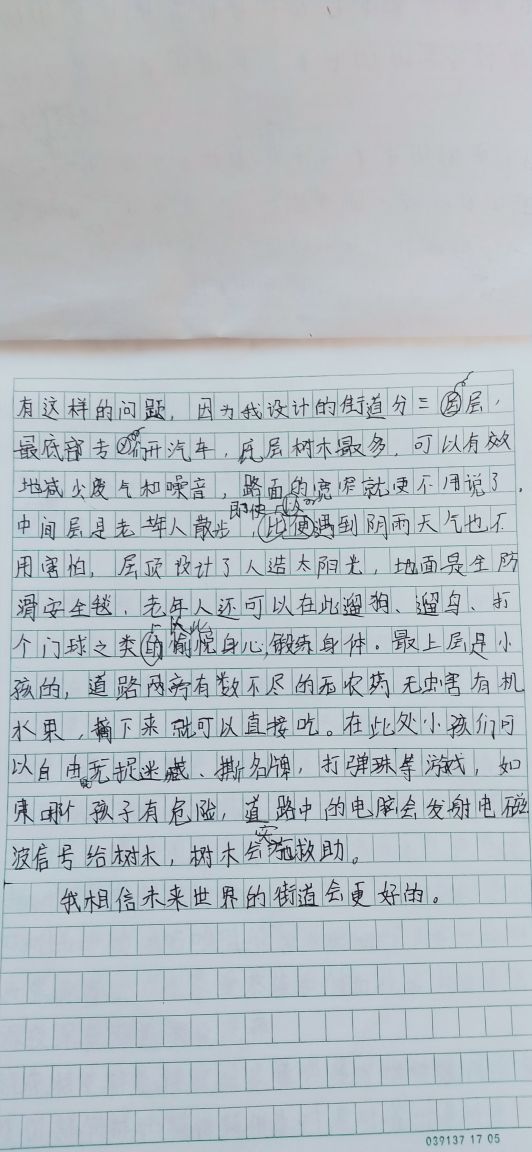 有这样的问题，因为我设计的街道分三层，
最底部专开汽车，底层树木最多，可以有效
地减少废气和噪音，路面的宽窄就更不用说了。
即使
中间层是老年人散步，比便遇到阴雨天气也不
用害怕，层顶设计了人造太阳光，地面是全防
滑安全毯，老年人还可以在此遛狗、遛鸟、打
个门球之类的愉悦身心，锻练身体。最上层是小
孩的，道路两旁有数不尽的无农药无虫害有机
水果，摘下来就可以直接吃。在此处小孩们可
以自由玩捉迷藏、撕名牌，打弹珠等游戏，如
果哪个孩子有危险，道路中的电脑会发射电磁
波信号给树木，树木会实施救助。
我相信未来世界的街道会更好的。
039137 17 05